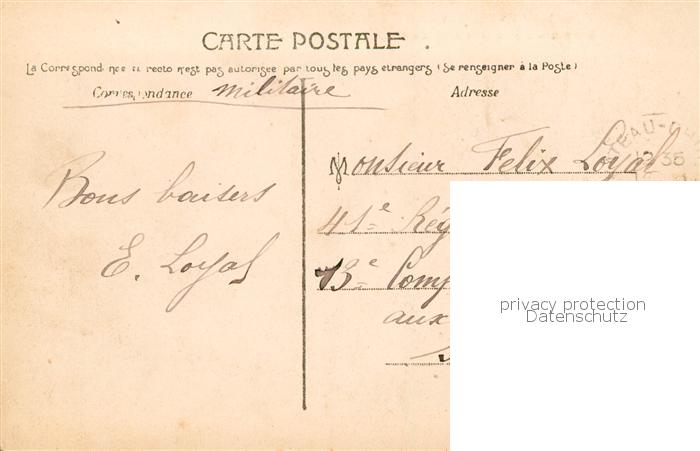 CARTE POSTALE
La Correspondance au recto n'est pas autorisée par tous les pays étrangers (Se renseigner à la Poste)
Correspondance militaire
Adresse
Bons baisers
E. Loyal
Monsieur Felix Loyal
41e Rég
13e Comp
aux
privacy protection
Datenschutz